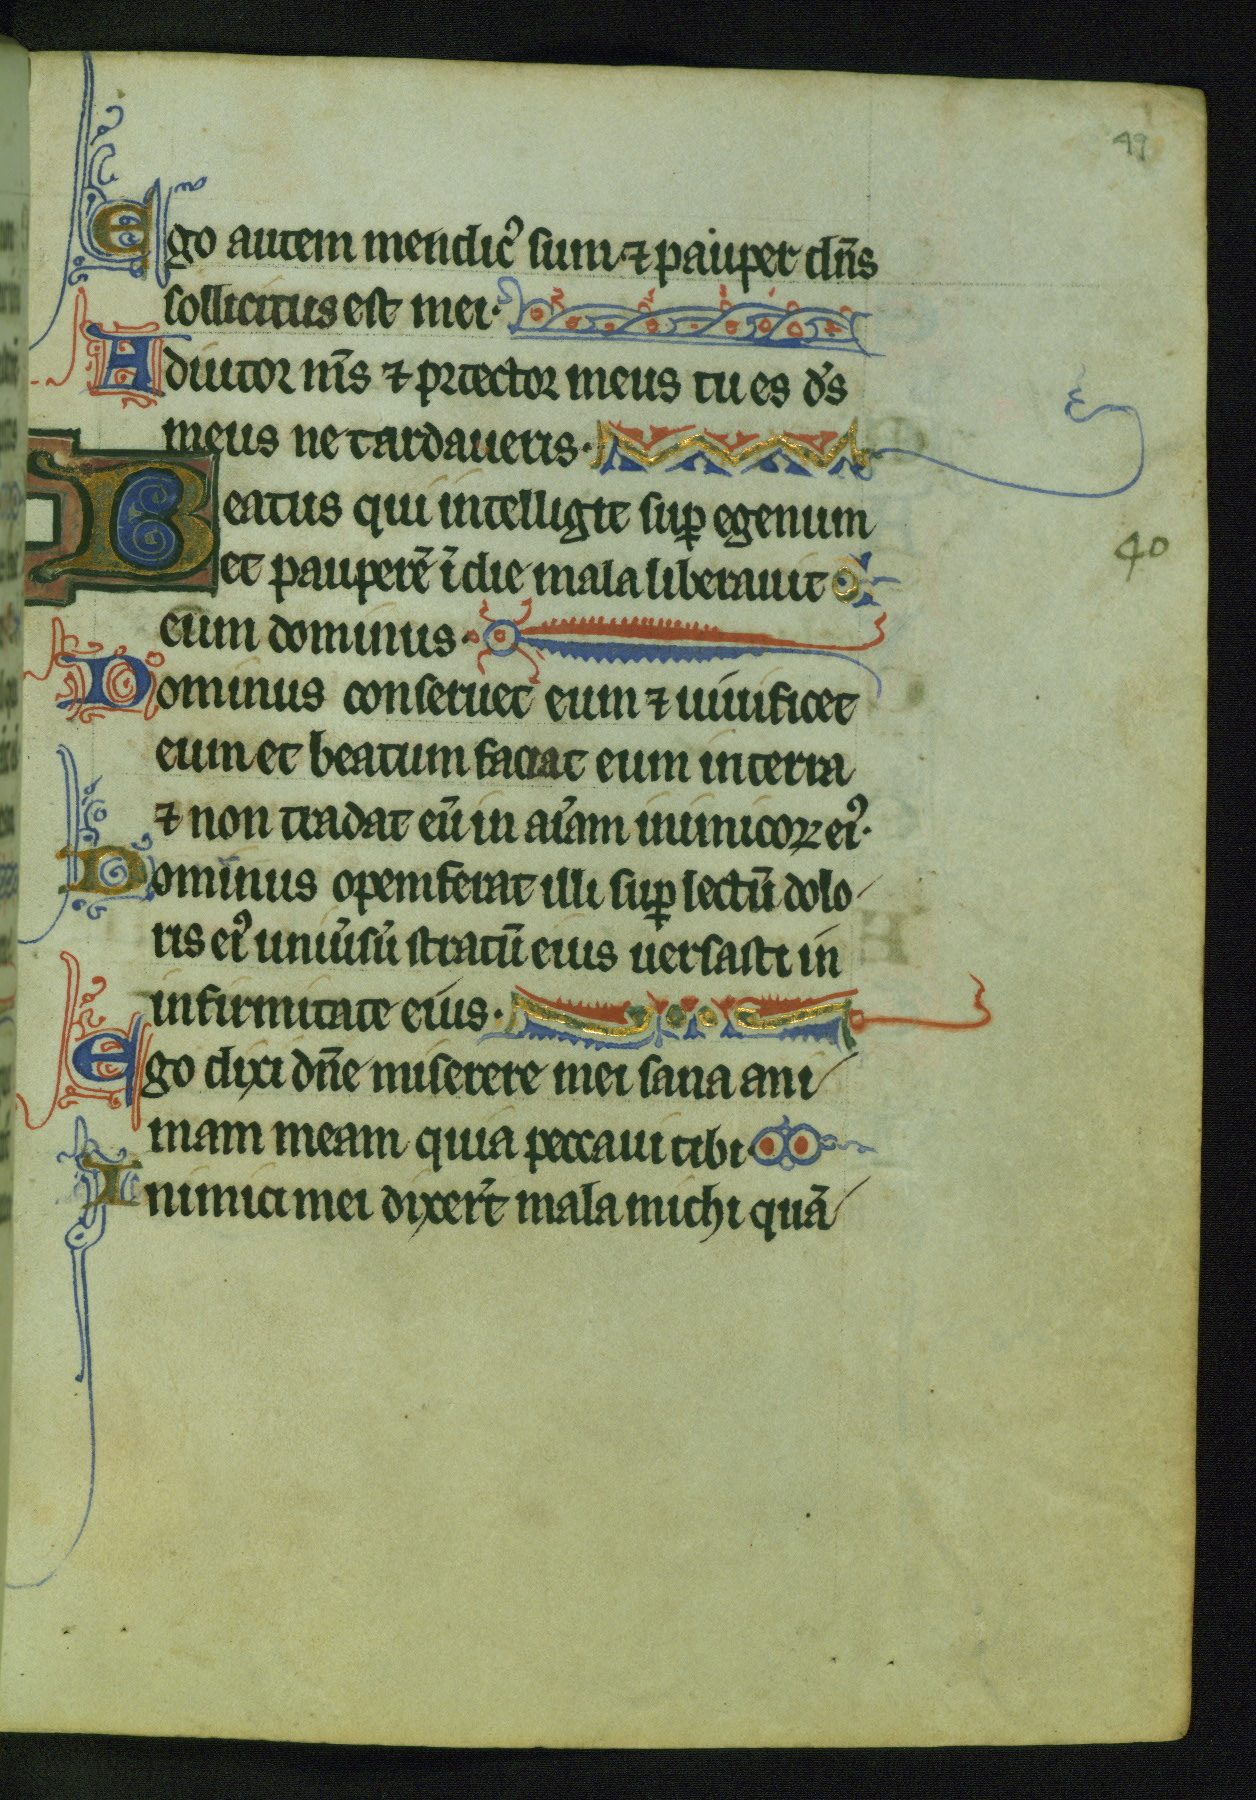 49
Ego autem mendicꝰ sum ⁊ pauper dn̄s
sollicitus est mei·
Adiutor m̄s ⁊ ꝓtector meus tu es d̓s
meus ne tardaueris·
Beatus qui intelligit suꝑ egenum
40
et pauperē ī die mala liberauit
eum dominus·
Dominus conseruet eum ⁊ uiuificet
eum et beatum faciat eum in terra
⁊ non tradat eū in aīam inimicoꝝ eiꝰ·
Dominus opem ferat illi suꝑ lectū dolo
ris eiꝰ uniūsū stratū eius uersasti in
infirmitate eius·
Ego dixi dn̄e miserere mei sana ani
mam meam quia peccaui tibi
Inimici mei dixer̄t mala michi quā